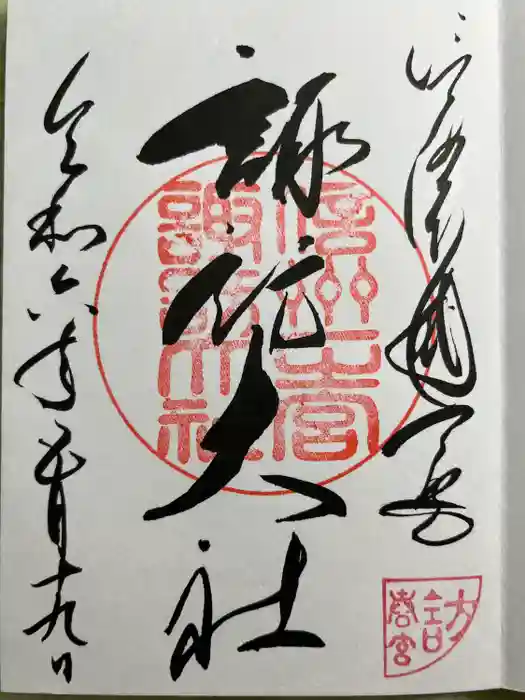 信濃國一宮
諏訪大社
令和六年 月十九日
信州一宮
諏訪大社
訪
春宮